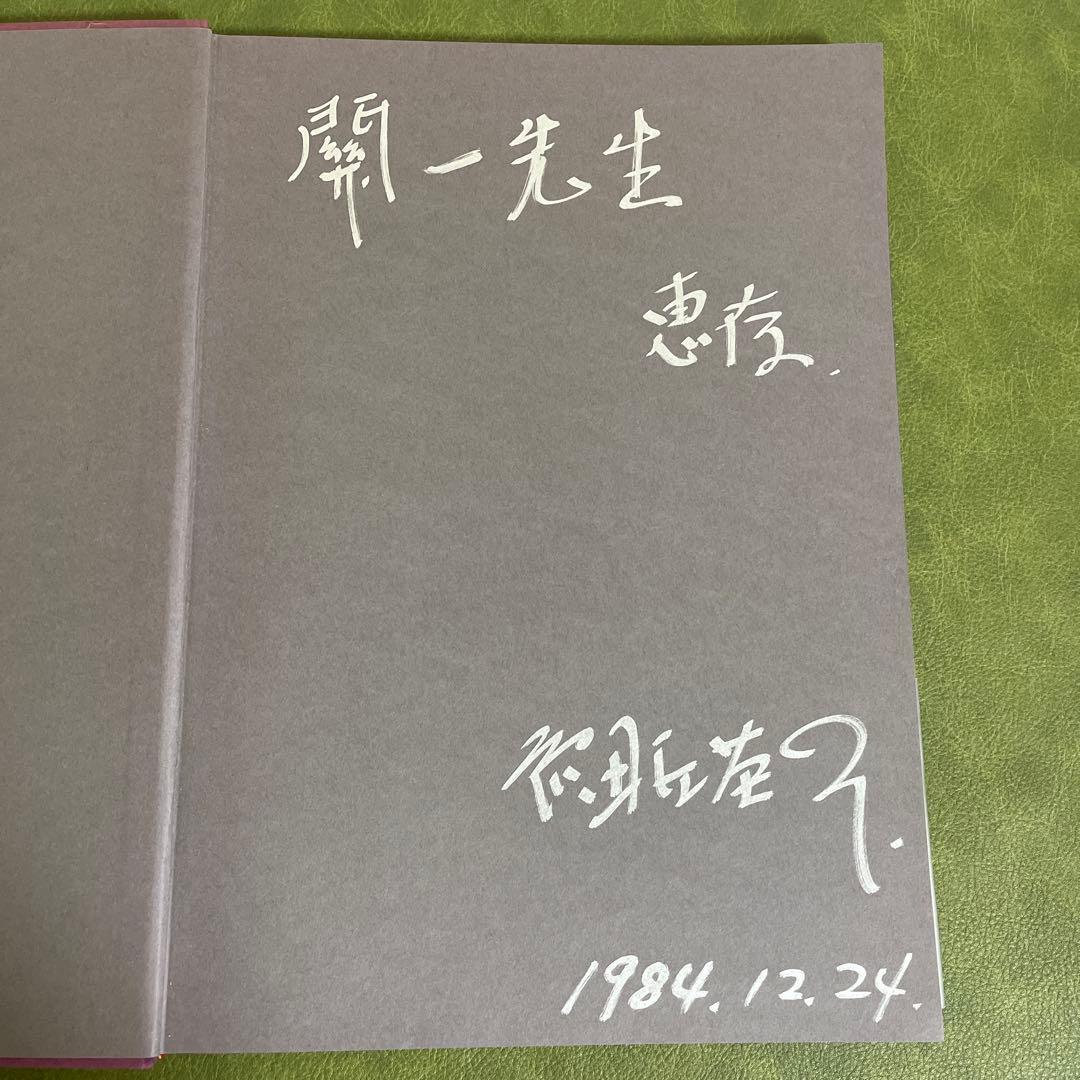 關一先生
惠存.
1984.12.24.